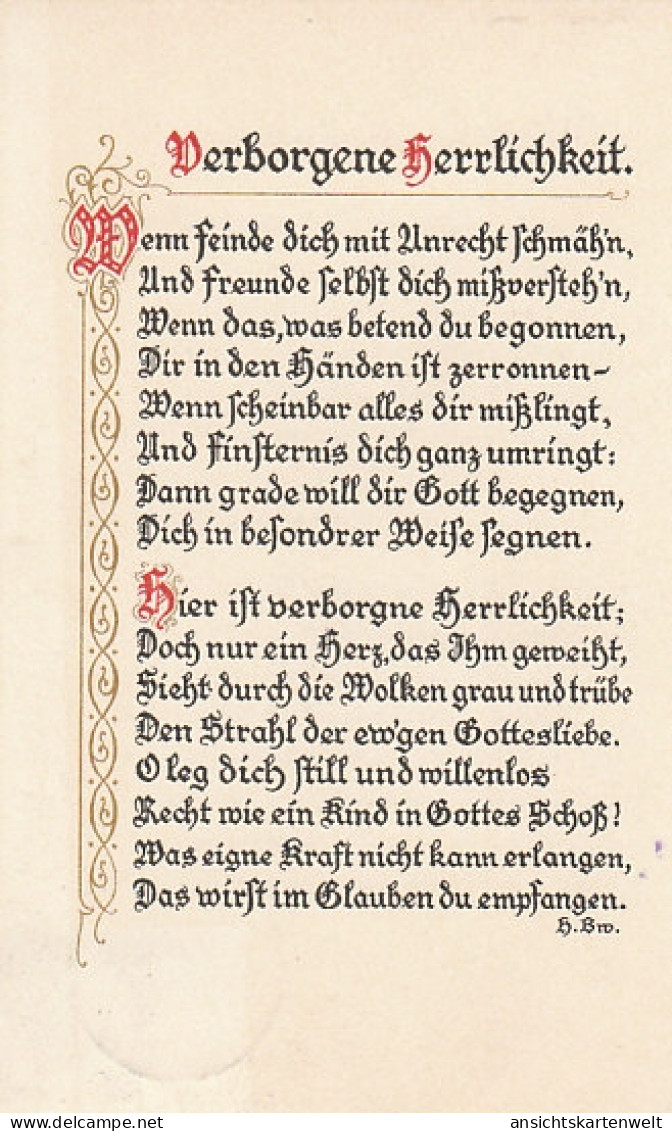 Verborgene Herrlichkeit.
Wenn Feinde dich mit Unrecht schmäh'n,
Und Freunde selbst dich mißversteh'n,
Wenn das, was betend du begonnen,
Dir in den Händen ist zerronnen-
Wenn scheinbar alles dir mißlingt,
Und Finsternis dich ganz umringt:
Dann grade will dir Gott begegnen,
Dich in besondrer Weise segnen.
Hier ist verborgne Herrlichkeit;
Doch nur ein Herz, das Ihm geweiht,
Sieht durch die Wolken grau und trübe
Den Strahl der ew'gen Gottesliebe.
O leg dich still und willenlos
Recht wie ein Kind in Gottes Schoß!
Was eigne Kraft nicht kann erlangen,
Das wirst im Glauben du empfangen.
H. Bw.
ansichtskartenwelt